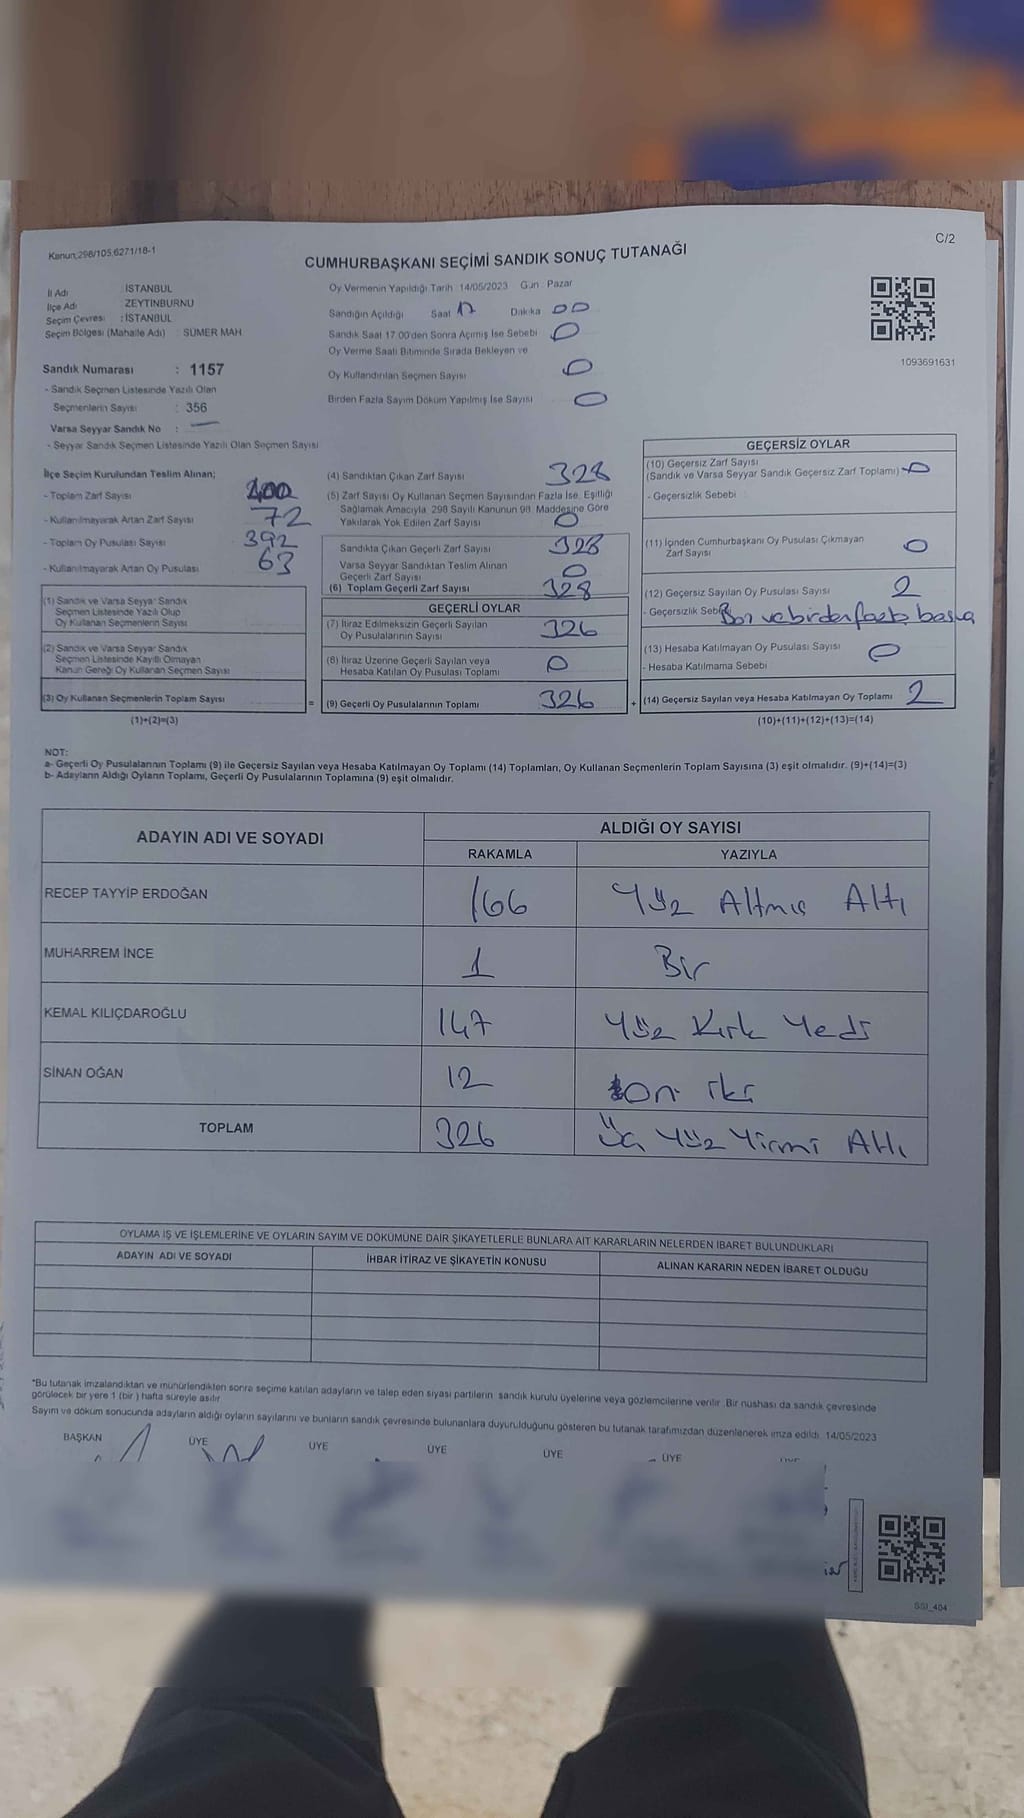 Kanun;298/105,6271/18-1
C/2
CUMHURBAŞKANI SEÇİMİ SANDIK SONUÇ TUTANAĞI
İl Adı : İSTANBUL
İlçe Adı : ZEYTİNBURNU
Seçim Çevresi : İSTANBUL
Seçim Bölgesi (Mahalle Adı) : SÜMER MAH
Sandık Numarası : 1157
- Sandık Seçmen Listesinde Yazılı Olan
Seçmenlerin Sayısı : 356
Varsa Seyyar Sandık No : —
- Seyyar Sandık Seçmen Listesinde Yazılı Olan Seçmen Sayısı
Oy Vermenin Yapıldığı Tarih : 14/05/2023 Gün : Pazar
Sandığın Açıldığı Saat 17 Dakika 00
Sandık Saat 17:00'den Sonra Açılmış İse Sebebi 0
Oy Verme Saati Bitiminde Sırada Bekleyen ve
Oy Kullandırılan Seçmen Sayısı 0
Birden Fazla Sayım Döküm Yapılmış İse Sayısı 0
1093691631
İlçe Seçim Kurulundan Teslim Alınan;
- Toplam Zarf Sayısı 400
- Kullanılmayarak Artan Zarf Sayısı 72
- Toplam Oy Pusulası Sayısı 392
- Kullanılmayarak Artan Oy Pusulası 63
(1) Sandık ve Varsa Seyyar Sandık
Seçmen Listesinde Yazılı Olup
Oy Kullanan Seçmenlerin Sayısı
(2) Sandık ve Varsa Seyyar Sandık
Seçmen Listesinde Kayıtlı Olmayan
Kanun Gereği Oy Kullanan Seçmen Sayısı
(3) Oy Kullanan Seçmenlerin Toplam Sayısı
(1)+(2)=(3)
(4) Sandıktan Çıkan Zarf Sayısı 328
(5) Zarf Sayısı Oy Kullanan Seçmen Sayısından Fazla İse, Eşitliği
Sağlamak Amacıyla, 298 Sayılı Kanunun 98. Maddesine Göre
Yakılarak Yok Edilen Zarf Sayısı 0
Sandıkta Çıkan Geçerli Zarf Sayısı 328
Varsa Seyyar Sandıktan Teslim Alınan
Geçerli Zarf Sayısı 0
(6) Toplam Geçerli Zarf Sayısı 328
GEÇERLİ OYLAR
(7) İtiraz Edilmeksizin Geçerli Sayılan
Oy Pusulalarının Sayısı 326
(8) İtiraz Üzerine Geçerli Sayılan veya
Hesaba Katılan Oy Pusulası Toplamı 0
= (9) Geçerli Oy Pusulalarının Toplamı 326
GEÇERSİZ OYLAR
(10) Geçersiz Zarf Sayısı
(Sandık ve Varsa Seyyar Sandık Geçersiz Zarf Toplamı) 0
- Geçersizlik Sebebi
(11) İçinden Cumhurbaşkanı Oy Pusulası Çıkmayan
Zarf Sayısı 0
(12) Geçersiz Sayılan Oy Pusulası Sayısı 2
- Geçersizlik Seb Boş ve birden fazla
(13) Hesaba Katılmayan Oy Pusulası Sayısı 0
- Hesaba Katılmama Sebebi
+ (14) Geçersiz Sayılan veya Hesaba Katılmayan Oy Toplamı 2
(10)+(11)+(12)+(13)=(14)
NOT:
a- Geçerli Oy Pusulalarının Toplamı (9) ile Geçersiz Sayılan veya Hesaba Katılmayan Oy Toplamı (14) Toplamları, Oy Kullanan Seçmenlerin Toplam Sayısına (3) eşit olmalıdır. (9)+(14)=(3)
b- Adayların Aldığı Oyların Toplamı, Geçerli Oy Pusulalarının Toplamına (9) eşit olmalıdır.
ADAYIN ADI VE SOYADI
ALDIĞI OY SAYISI
RAKAMLA YAZIYLA
RECEP TAYYİP ERDOĞAN 166 Yüz Altmış Altı
MUHARREM İNCE 1 Bir
KEMAL KILIÇDAROĞLU 147 Yüz Kırk Yedi
SİNAN OĞAN 12 on iki
TOPLAM 326 Üç Yüz Yirmi Altı
OYLAMA İŞ VE İŞLEMLERİNE VE OYLARIN SAYIM VE DÖKÜMÜNE DAİR ŞİKAYETLERLE BUNLARA AİT KARARLARIN NELERDEN İBARET BULUNDUKLARI
ADAYIN ADI VE SOYADI İHBAR İTİRAZ VE ŞİKAYETİN KONUSU ALINAN KARARIN NEDEN İBARET OLDUĞU
*Bu tutanak imzalandıktan ve mühürlendikten sonra seçime katılan adayların ve talep eden siyasi partilerin sandık kurulu üyelerine veya gözlemcilerine verilir. Bir nüshası da sandık çevresinde
görülecek bir yere 1 (bir) hafta süreyle asılır.
Sayım ve döküm sonucunda adayların aldığı oyların sayılarını ve bunların sandık çevresinde bulunanlara duyurulduğunu gösteren bu tutanak tarafımızdan düzenlenerek imza edildi. 14/05/2023
BAŞKAN ÜYE ÜYE ÜYE ÜYE ÜYE
SSI_404